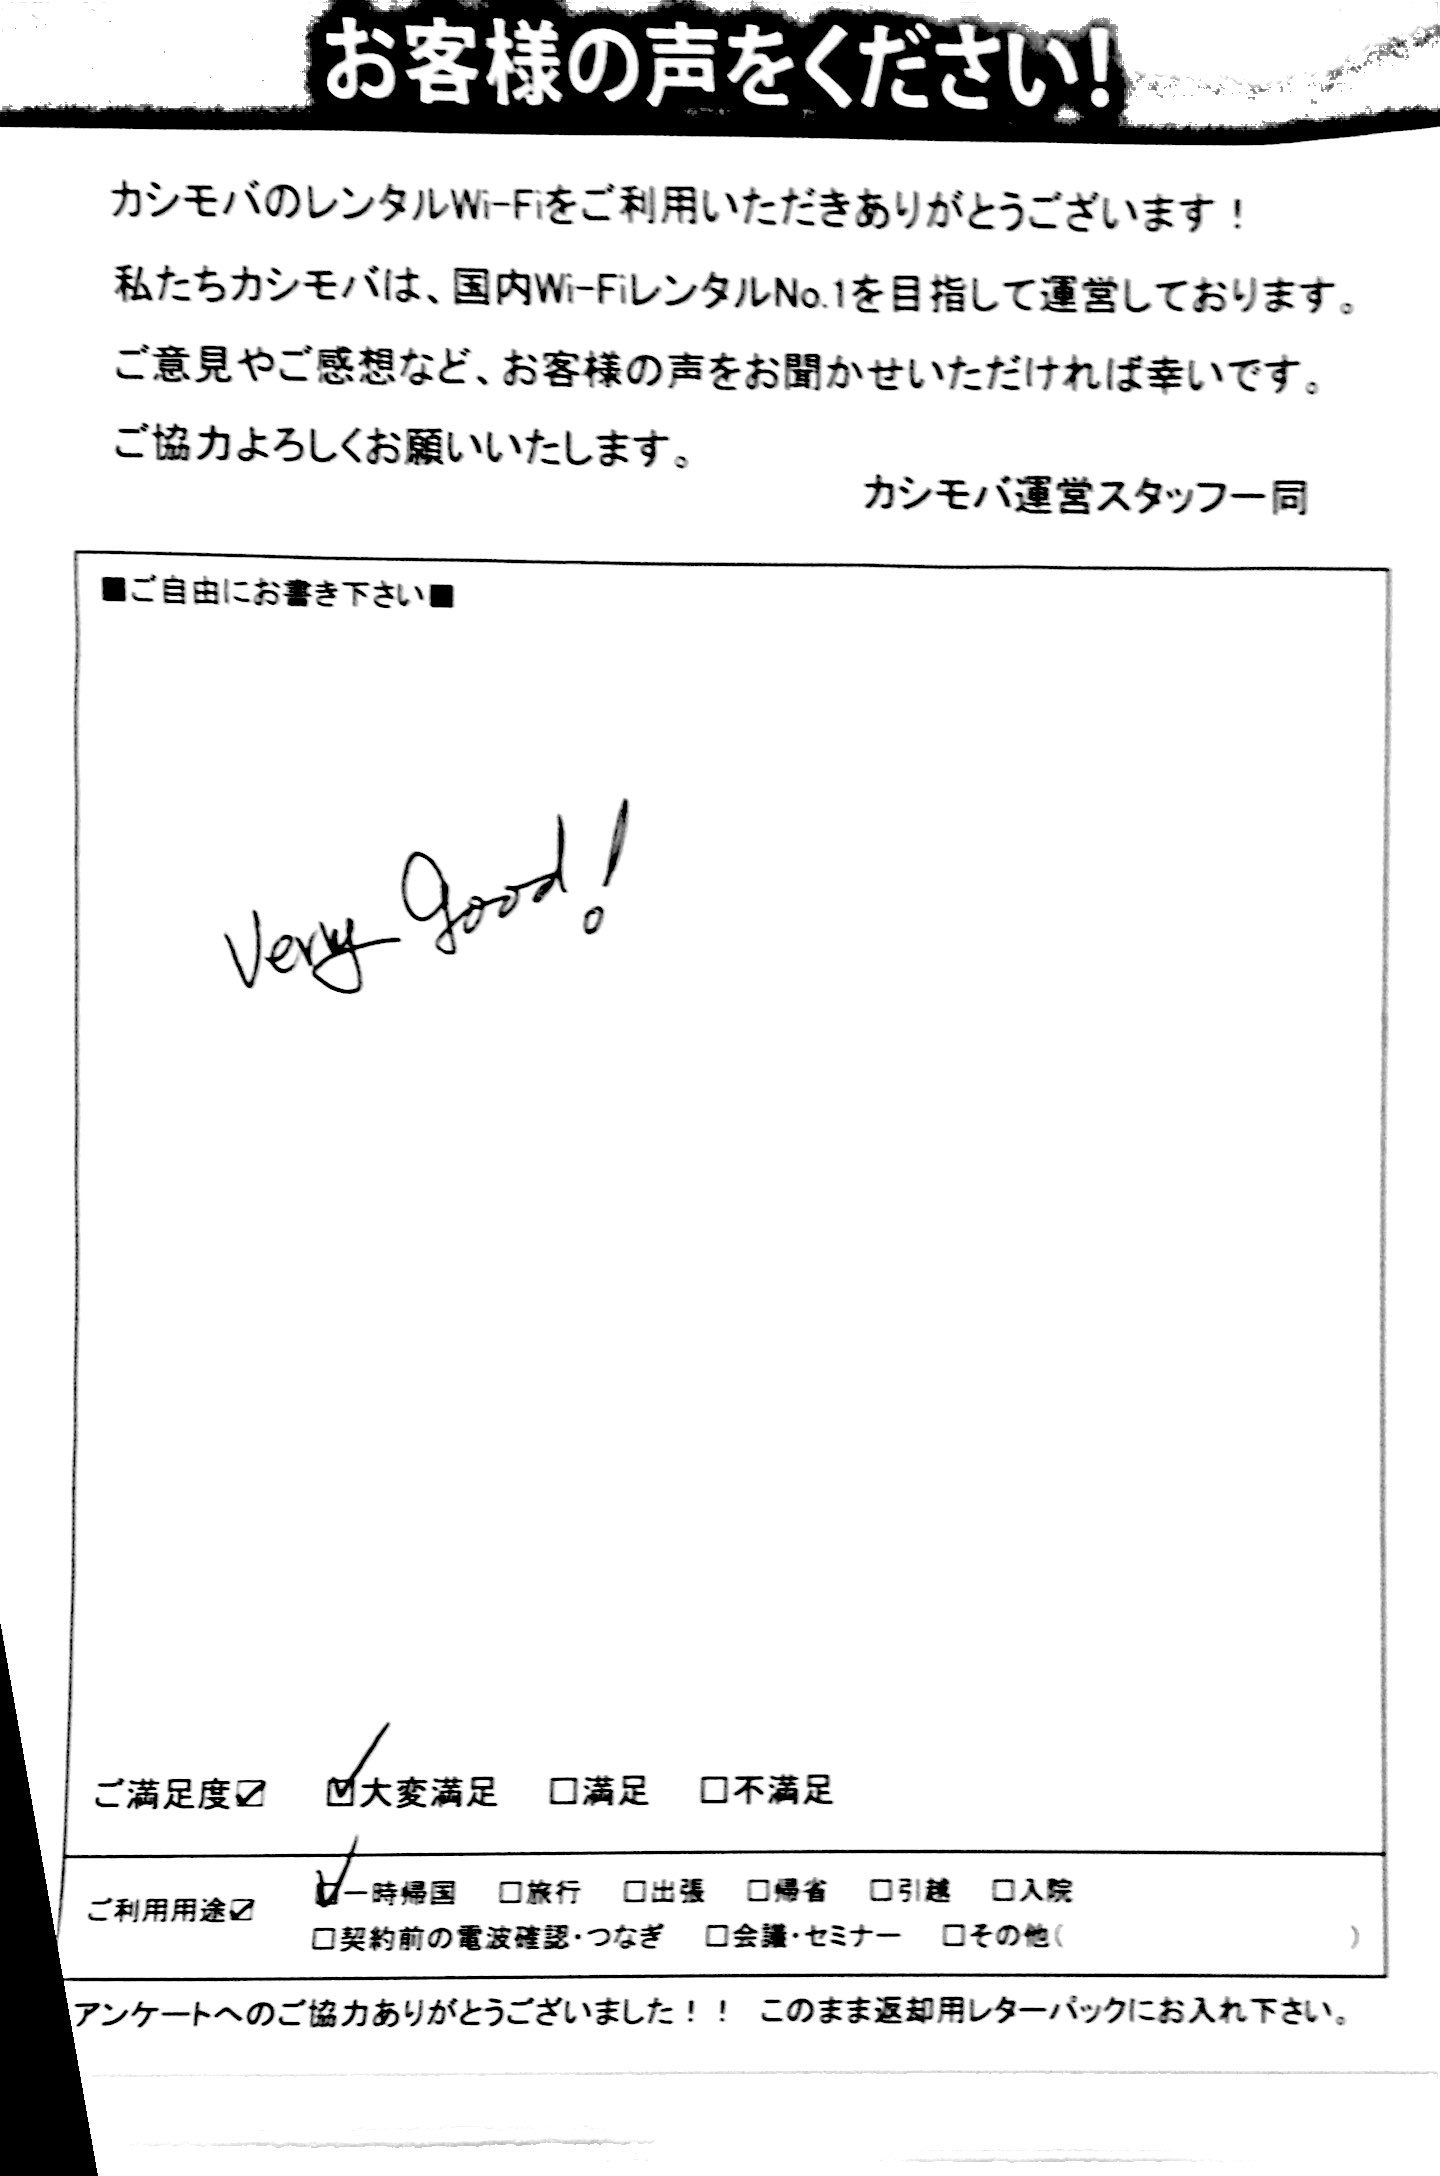 お客様の声をください!
カシモバのレンタルWi-Fiをご利用いただきありがとうございます！
私たちカシモバは、国内Wi-FiレンタルNo.1を目指して運営しております。
ご意見やご感想など、お客様の声をお聞かせいただければ幸いです。
ご協力よろしくお願いいたします。
カシモバ運営スタッフ一同
■ご自由にお書き下さい■
Very Good!
ご満足度☑ ☑大変満足 □満足 □不満足
ご利用用途☑ ☑一時帰国 □旅行 □出張 □帰省 □引越 □入院
□契約前の電波確認・つなぎ □会議・セミナー □その他( )
アンケートへのご協力ありがとうございました！！ このまま返却用レターパックにお入れ下さい。